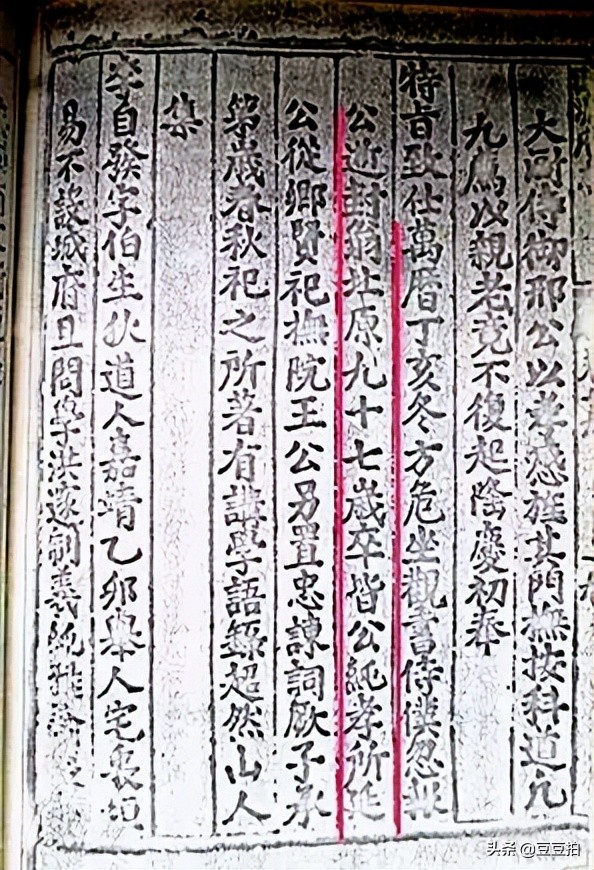 大侍御邢公以孝感旌其門撫按科道凡
九薦以親老竟不復起隆慶初奉
特旨致仕萬曆丁亥冬方危坐觀書侍僕忽報
公逝封翁址原九十七歲卒皆公純孝所延
公從鄉賢祀撫院王公另置忠諫詞厥子承
榮歲春秋祀之所著有講學語錄超然山人
集
李自發字伯生狄道人嘉靖乙卯舉人宅衷坦
易不設城府且問學洪邃制義純雅
头条 @豆豆拍